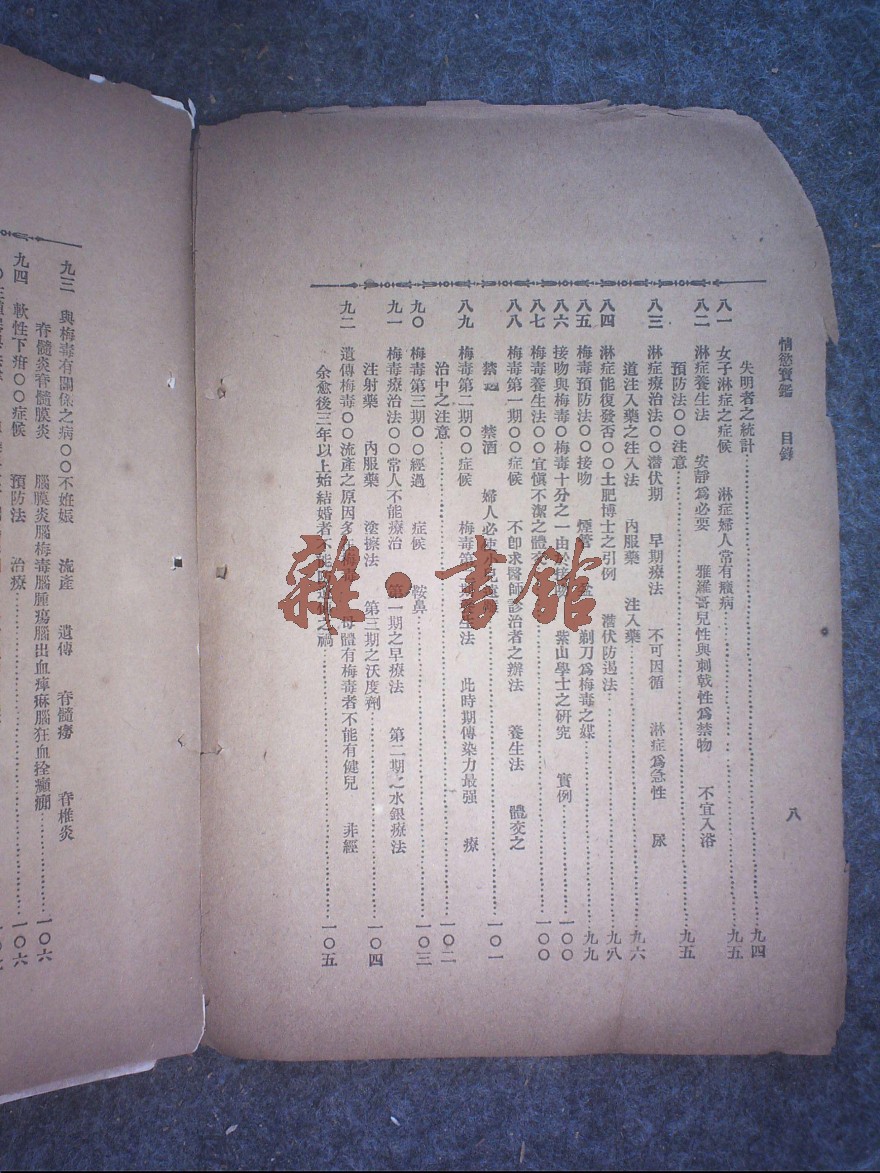 情慾寶鑑　目錄　八
失明者之統計……九四
八一　女子淋症之症候　淋症婦人常有癪病……九五
八二　淋症養生法　安靜爲必要　雅羅啓兒性與刺戟性爲禁物　不宜入浴
預防法〇〇注意……九五
八三　淋症療治法〇〇潛伏期　早期療法　不可因循　淋症爲急性　尿
道注入藥之注入法　內服藥　注入藥……九六
八四　淋症能復發否〇〇土肥博士之引例　潛伏防遏法……九八
八五　梅毒預防法〇〇接吻　煙管　剃刀爲梅毒之媒……九九
八六　接吻與梅毒〇梅毒十分之一由於接吻　紫山學士之研究　實例……一〇〇
八七　梅毒養生法〇〇宜愼不潔之體交……一〇〇
八八　梅毒第一期〇〇症候　不卽求醫師診治者之辦法　養生法　體交之
禁　禁酒　婦人必使……一〇一
八九　梅毒第二期〇〇症候　梅毒第　生法　此時期傳染力最强　療
治中之注意……一〇二
九〇　梅毒第三期〇〇經過　症候　鞍鼻……一〇三
九一　梅毒療治法〇〇常人不能療治　第一期之早療法　第二期之水銀療法
注射藥　內服藥　塗擦法　第三期之沃度劑……一〇四
九二　遺傳梅毒〇〇流產之原因多　梅毒　母體有梅毒者不能有健兒　非經
余愈後三年以上始結婚者不能　之禍……一〇五
九三　與梅毒有關係之病〇〇不姙娠　流產　遺傳　脊髓癆　脊椎炎
脊髓炎脊髓膜炎　腦膜炎腦梅毒腦腫瘍腦出血痺痳腦狂血拴癲癇……一〇六
九四　軟性下疳〇〇症候　預防法　治療……一〇六
雜·書館